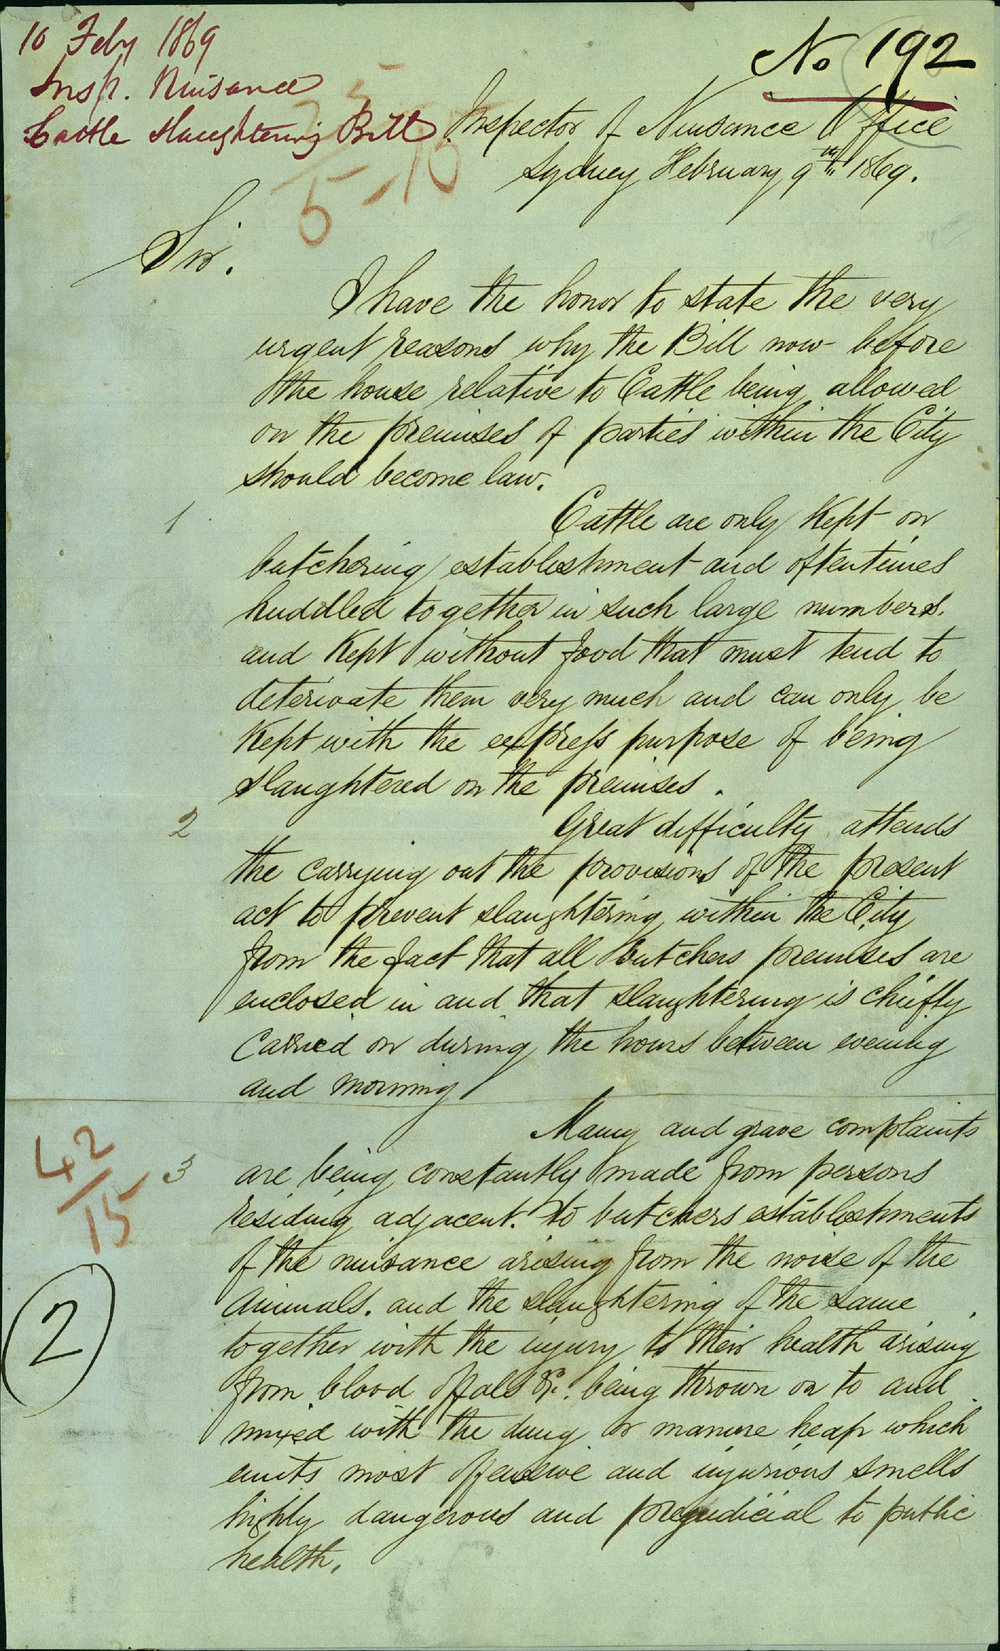 10 Feby 1869
Insp. Nuisance
Cattle Slaughtering Bill
No 192
5-10
Inspector of Nuisance Office
Sydney February 9th 1869.
Sir.
I have the honor to state the very
urgent reasons why the Bill now before
the house relative to Cattle being allowed
on the premises of parties within the City
should become law.
1
Cattle are only Kept on
butchering establishment and oftentimes
huddled together in such large numbers.
and Kept without food that must tend to
deteriorate them very much and can only be
Kept with the express purpose of being
slaughtered on the premises.
2
Great difficulty attends
the carrying out the provisions of the present
act to prevent slaughtering within the City
from the fact that all butchers premises are
enclosed in and that slaughtering is chiefly
carried on during the hours between evening
and morning
Many and grave complaints
42
15
3
are being constantly made from persons
residing adjacent. to butchers establishments
of the nuisance arising from the noise of the
animals. and the slaughtering of the same
together with the injury to their health arising
2
from blood offals &c. being thrown on to and
mixed with the dung or manure heap which
emits most offensive and injurious smells
highly dangerous and prejudicial to public
health.